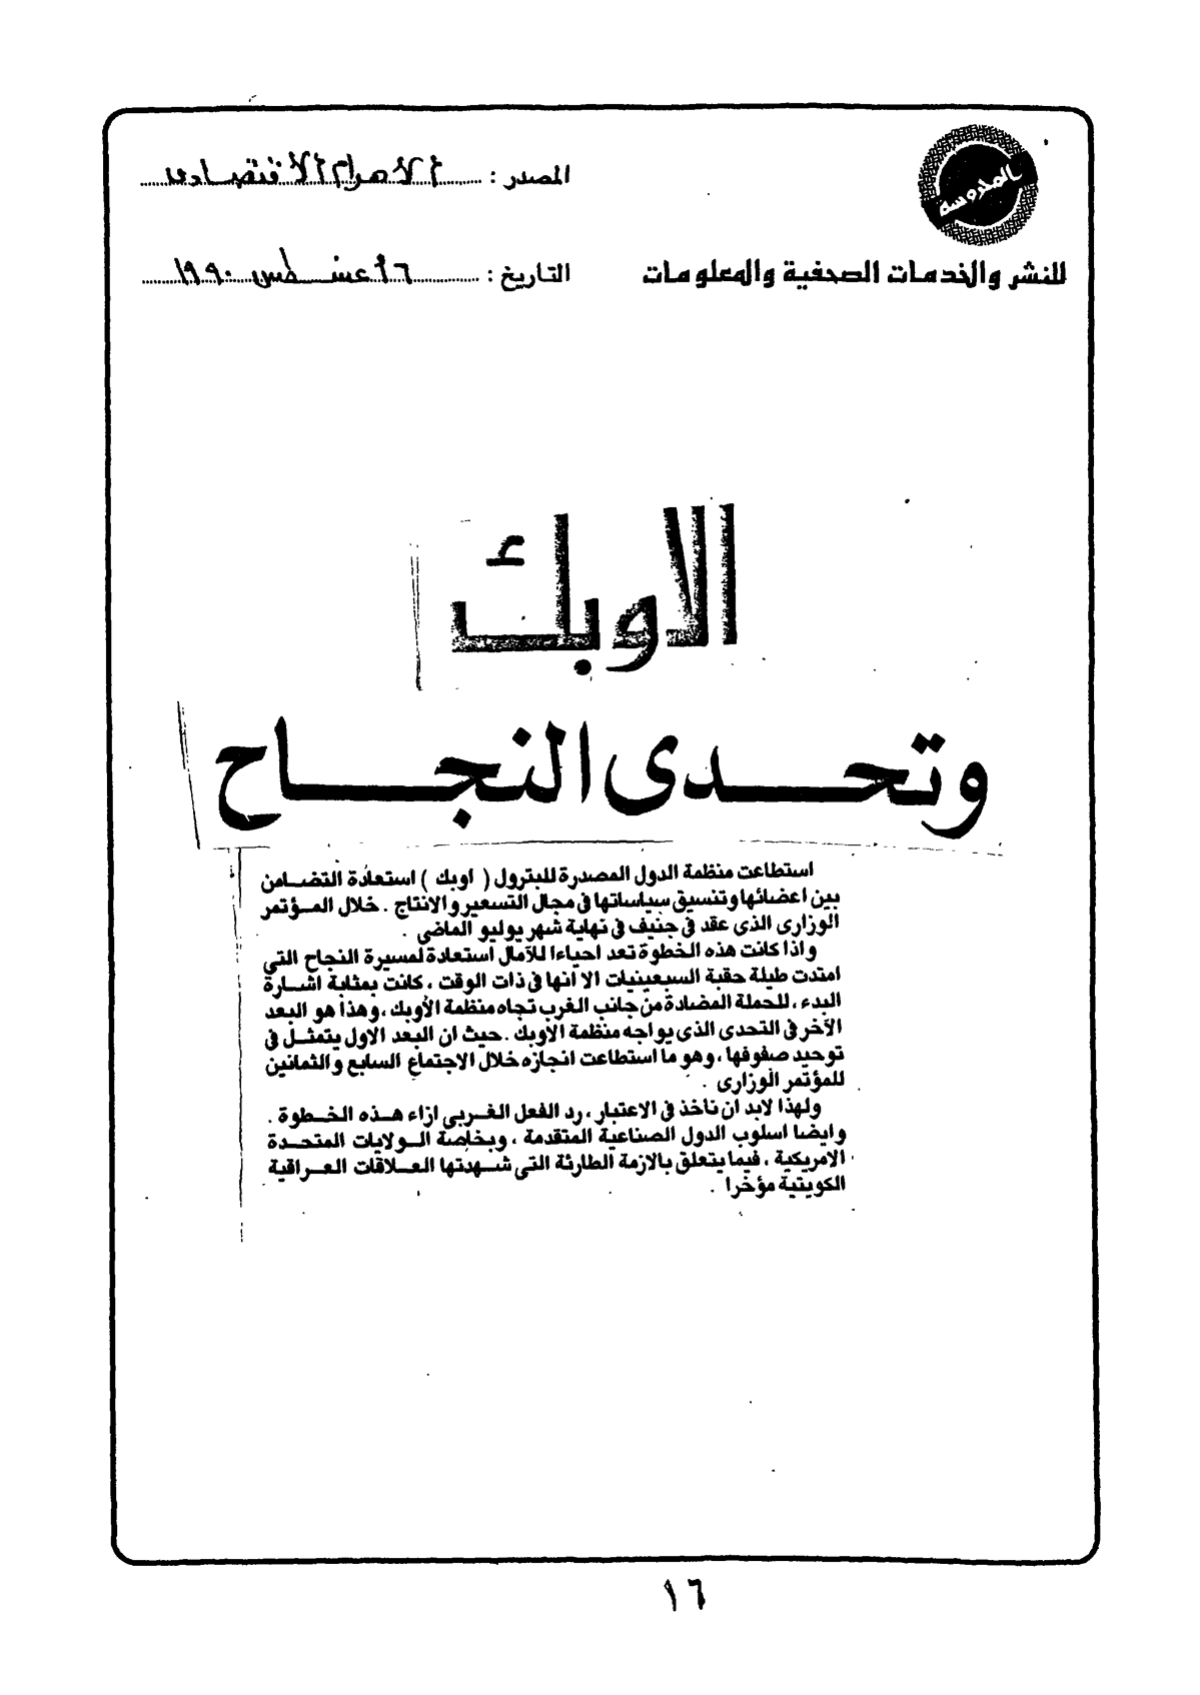 المحروسة
للنشر والخدمات الصحفية والمعلومات
المصدر : الأهرام الاقتصادى
التاريخ : ٦ أغسطس ١٩٩٠
الاوبك
وتحدى النجاح
استطاعت منظمة الدول المصدرة للبترول ( اوبك ) استعادة التضامن
بين اعضائها وتنسيق سياساتها فى مجال التسعير والانتاج . خلال المؤتمر
الوزارى الذى عقد فى جنيف فى نهاية شهر يوليو الماضى .
واذا كانت هذه الخطوة تعد احياءا للآمال استعادة لمسيرة النجاح التي
امتدت طيلة حقبة السبعينيات الا أنها فى ذات الوقت ، كانت بمثابة اشارة
البدء ، للحملة المضادة من جانب الغرب تجاه منظمة الأوبك ، وهذا هو البعد
الآخر فى التحدى الذى يواجه منظمة الأوبك . حيث ان البعد الاول يتمثل فى
توحيد صفوفها ، وهو ما استطاعت انجازه خلال الاجتماع السابع والثمانين
للمؤتمر الوزارى .
ولهذا لابد ان نأخذ فى الاعتبار ، رد الفعل الغربى ازاء هذه الخطوة .
وايضا اسلوب الدول الصناعية المتقدمة ، وبخاصة الولايات المتحدة
الامريكية ، فيما يتعلق بالازمة الطارئة التى شهدتها العلاقات العراقية
الكويتية مؤخرا .
١٦